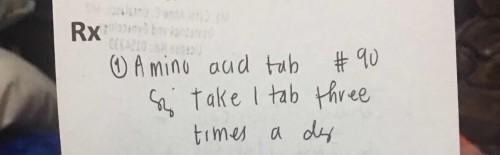 Rx
① Amino acid tab #90
Sig take 1 tab three
times a day